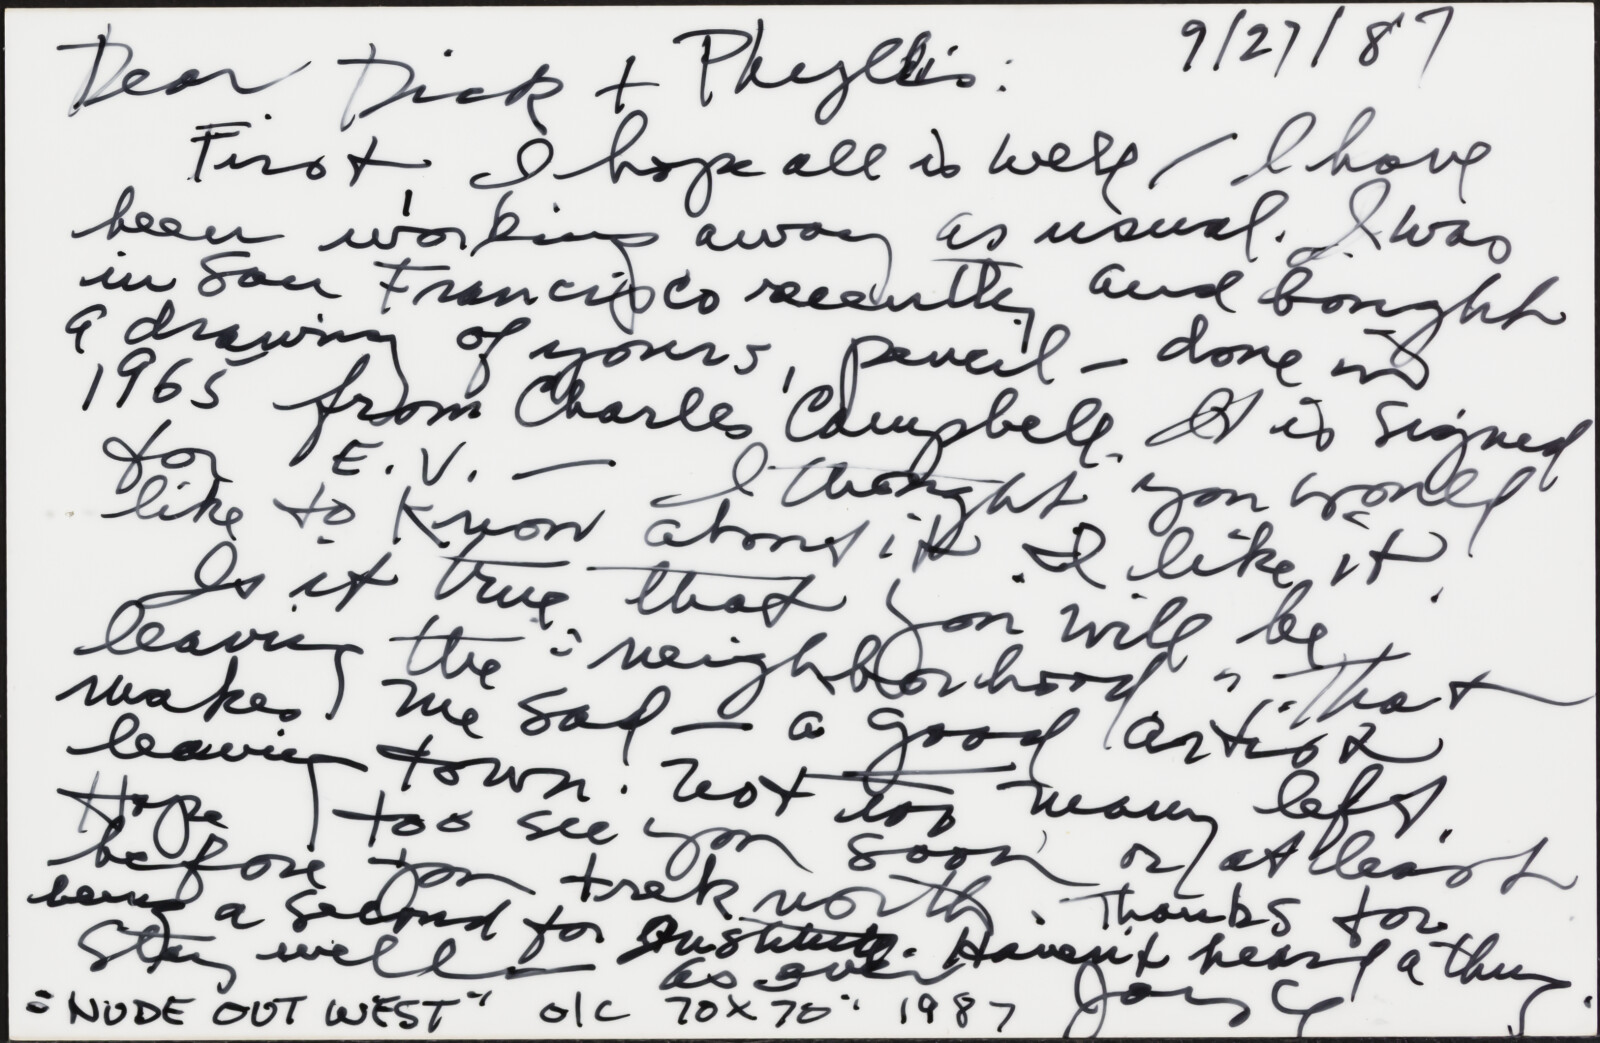 9/27/87
Dear Dick + Phyllis:
First, I hope all is well / I have
been working away as usual. I was
in San Francisco recently and bought
a drawing of yours, pencil - done in
1965 from Charles Campbell. It is signed
for E.V. — I thought you would
like to know about it. I like it.
Is it true that you will be
leaving the "neighborhood". That
makes me sad — a good artist
leaving town. Not too many left.
Hope too see you soon or at least
before you trek north. Thanks for
being a second for Institute. Haven't heard a thing.
Stay well — as ever
Joyce
"NUDE OUT WEST" o/c 70x70" 1987